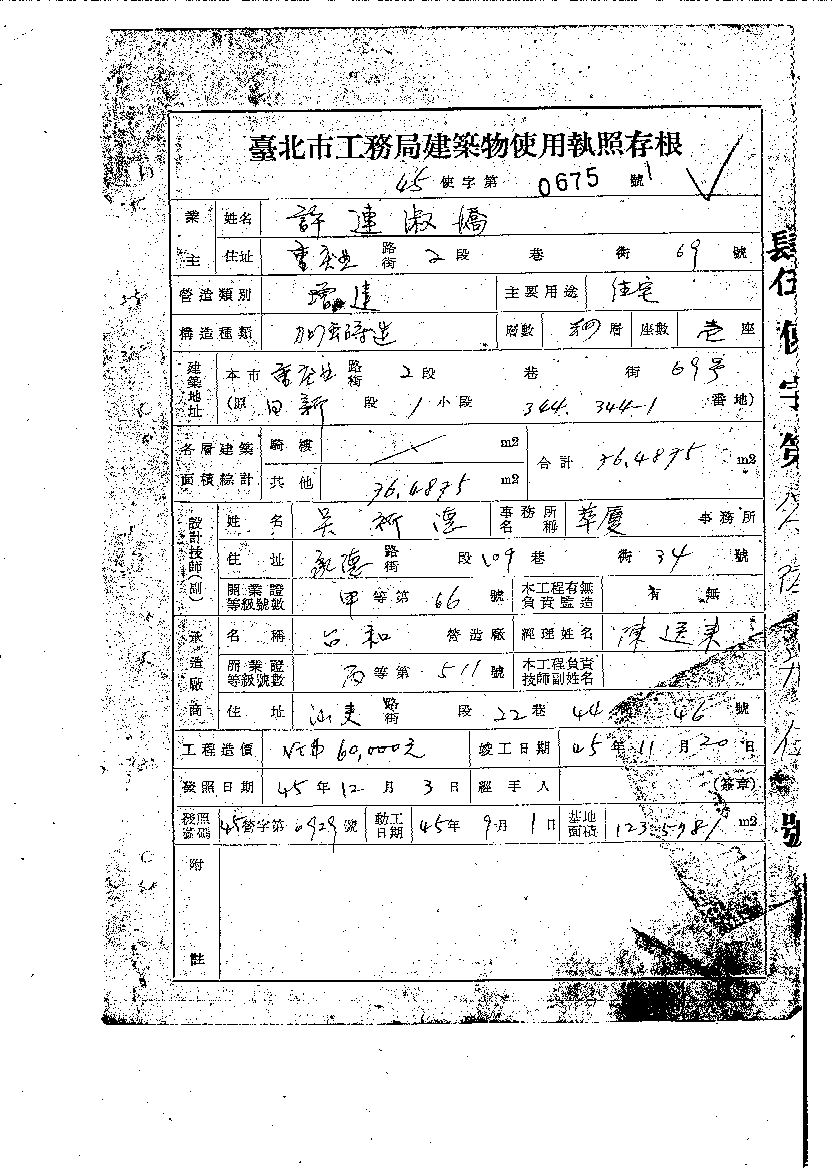 臺北市工務局建築物使用執照存根
45 使字第 0675 號
業主 姓名 許連淑嬌
住址 重慶北 路街 2 段 巷 街 69 號
營造類別 增建 主要用途 住宅
構造種類 加強磚造 層數 層 座數 壱 座
建築地址 本市 重慶北 路街 2 段 巷 街 69号
(原 日新 段 1 小段 344. 344-1 番地)
各層建築面積綜計 騎樓 m2 合計 76.4875 m2
其他 76.4875 m2
設計技師(副) 姓名 吳 德 事務所名稱 華廈 事務所
住址 路街 段 109 巷 街 34 號
開業證等級號數 甲 等第 66 號 本工程有無負責監造 有 無
承造廠商 名稱 台和 營造廠 經理姓名 陳 來
開業證等級號數 丙 等第 511 號 本工程負責技師副姓名
住址 路街 段 22 巷 44 街 46 號
工程造價 NT$ 60,000元 竣工日期 45 年 11 月 20 日
發照日期 45 年 12 月 3 日 經手人 (簽章)
發照號碼 45營字第 0929 號 動工日期 45年 9月 1日 基地面積 123.5781 m2
附註
肆伍使字第 伍號